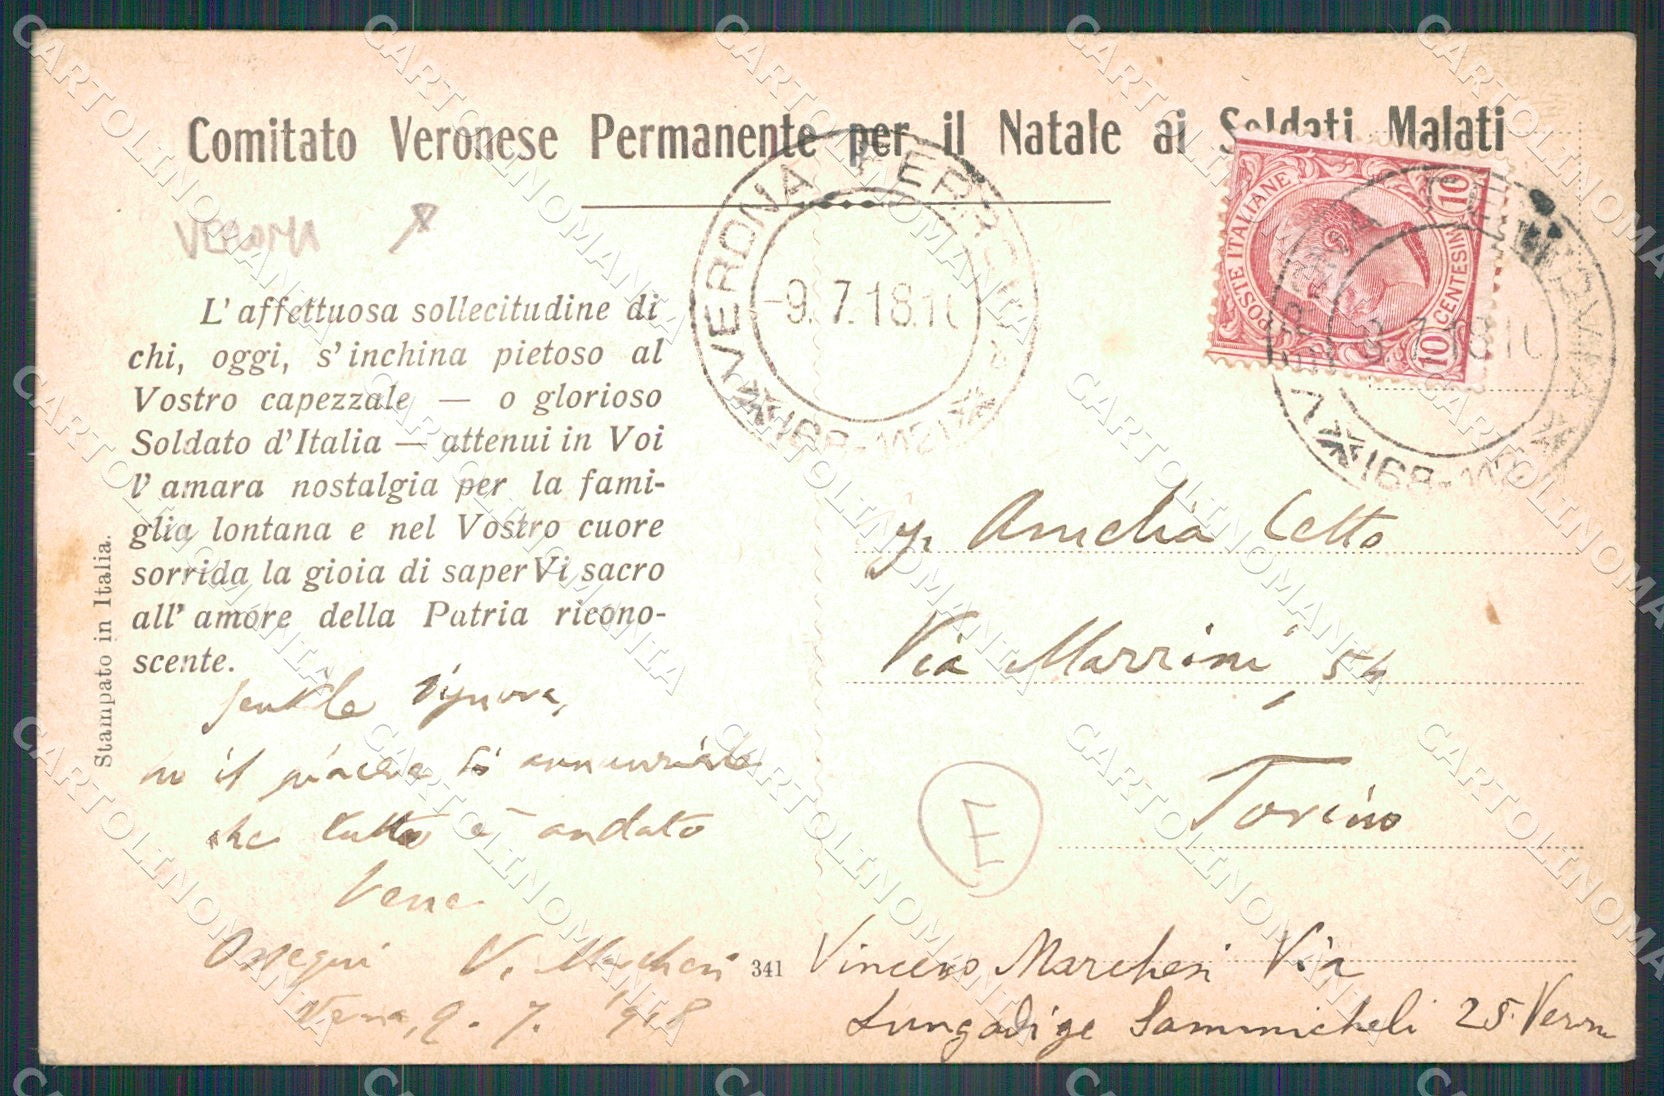 Comitato Veronese Permanente per il Natale ai Soldati Malati
VERONA
L'affettuosa sollecitudine di
chi, oggi, s'inchina pietoso al
Vostro capezzale — o glorioso
Soldato d'Italia — attenui in Voi
l'amara nostalgia per la fami-
glia lontana e nel Vostro cuore
sorrida la gioia di saperVi sacro
all'amore della Patria ricono-
scente.
Stampato in Italia.
Gentile Signora,
il piacere di annunziarle
che tutto è andato
bene
Ossequi V. Marchesi
9. 7. 1918
341
VERONA FERROVIA
-9.7.18.10
POSTE ITALIANE
CENTESIMI
10
10
VERONA FERROVIA
9.7.18.10
Amelia Cetto
Via Mazzini, 54
Torino
E
Vincenzo Marchesi Via
Lungadige Sammicheli 25. Verona
CARTOLINOMANIA